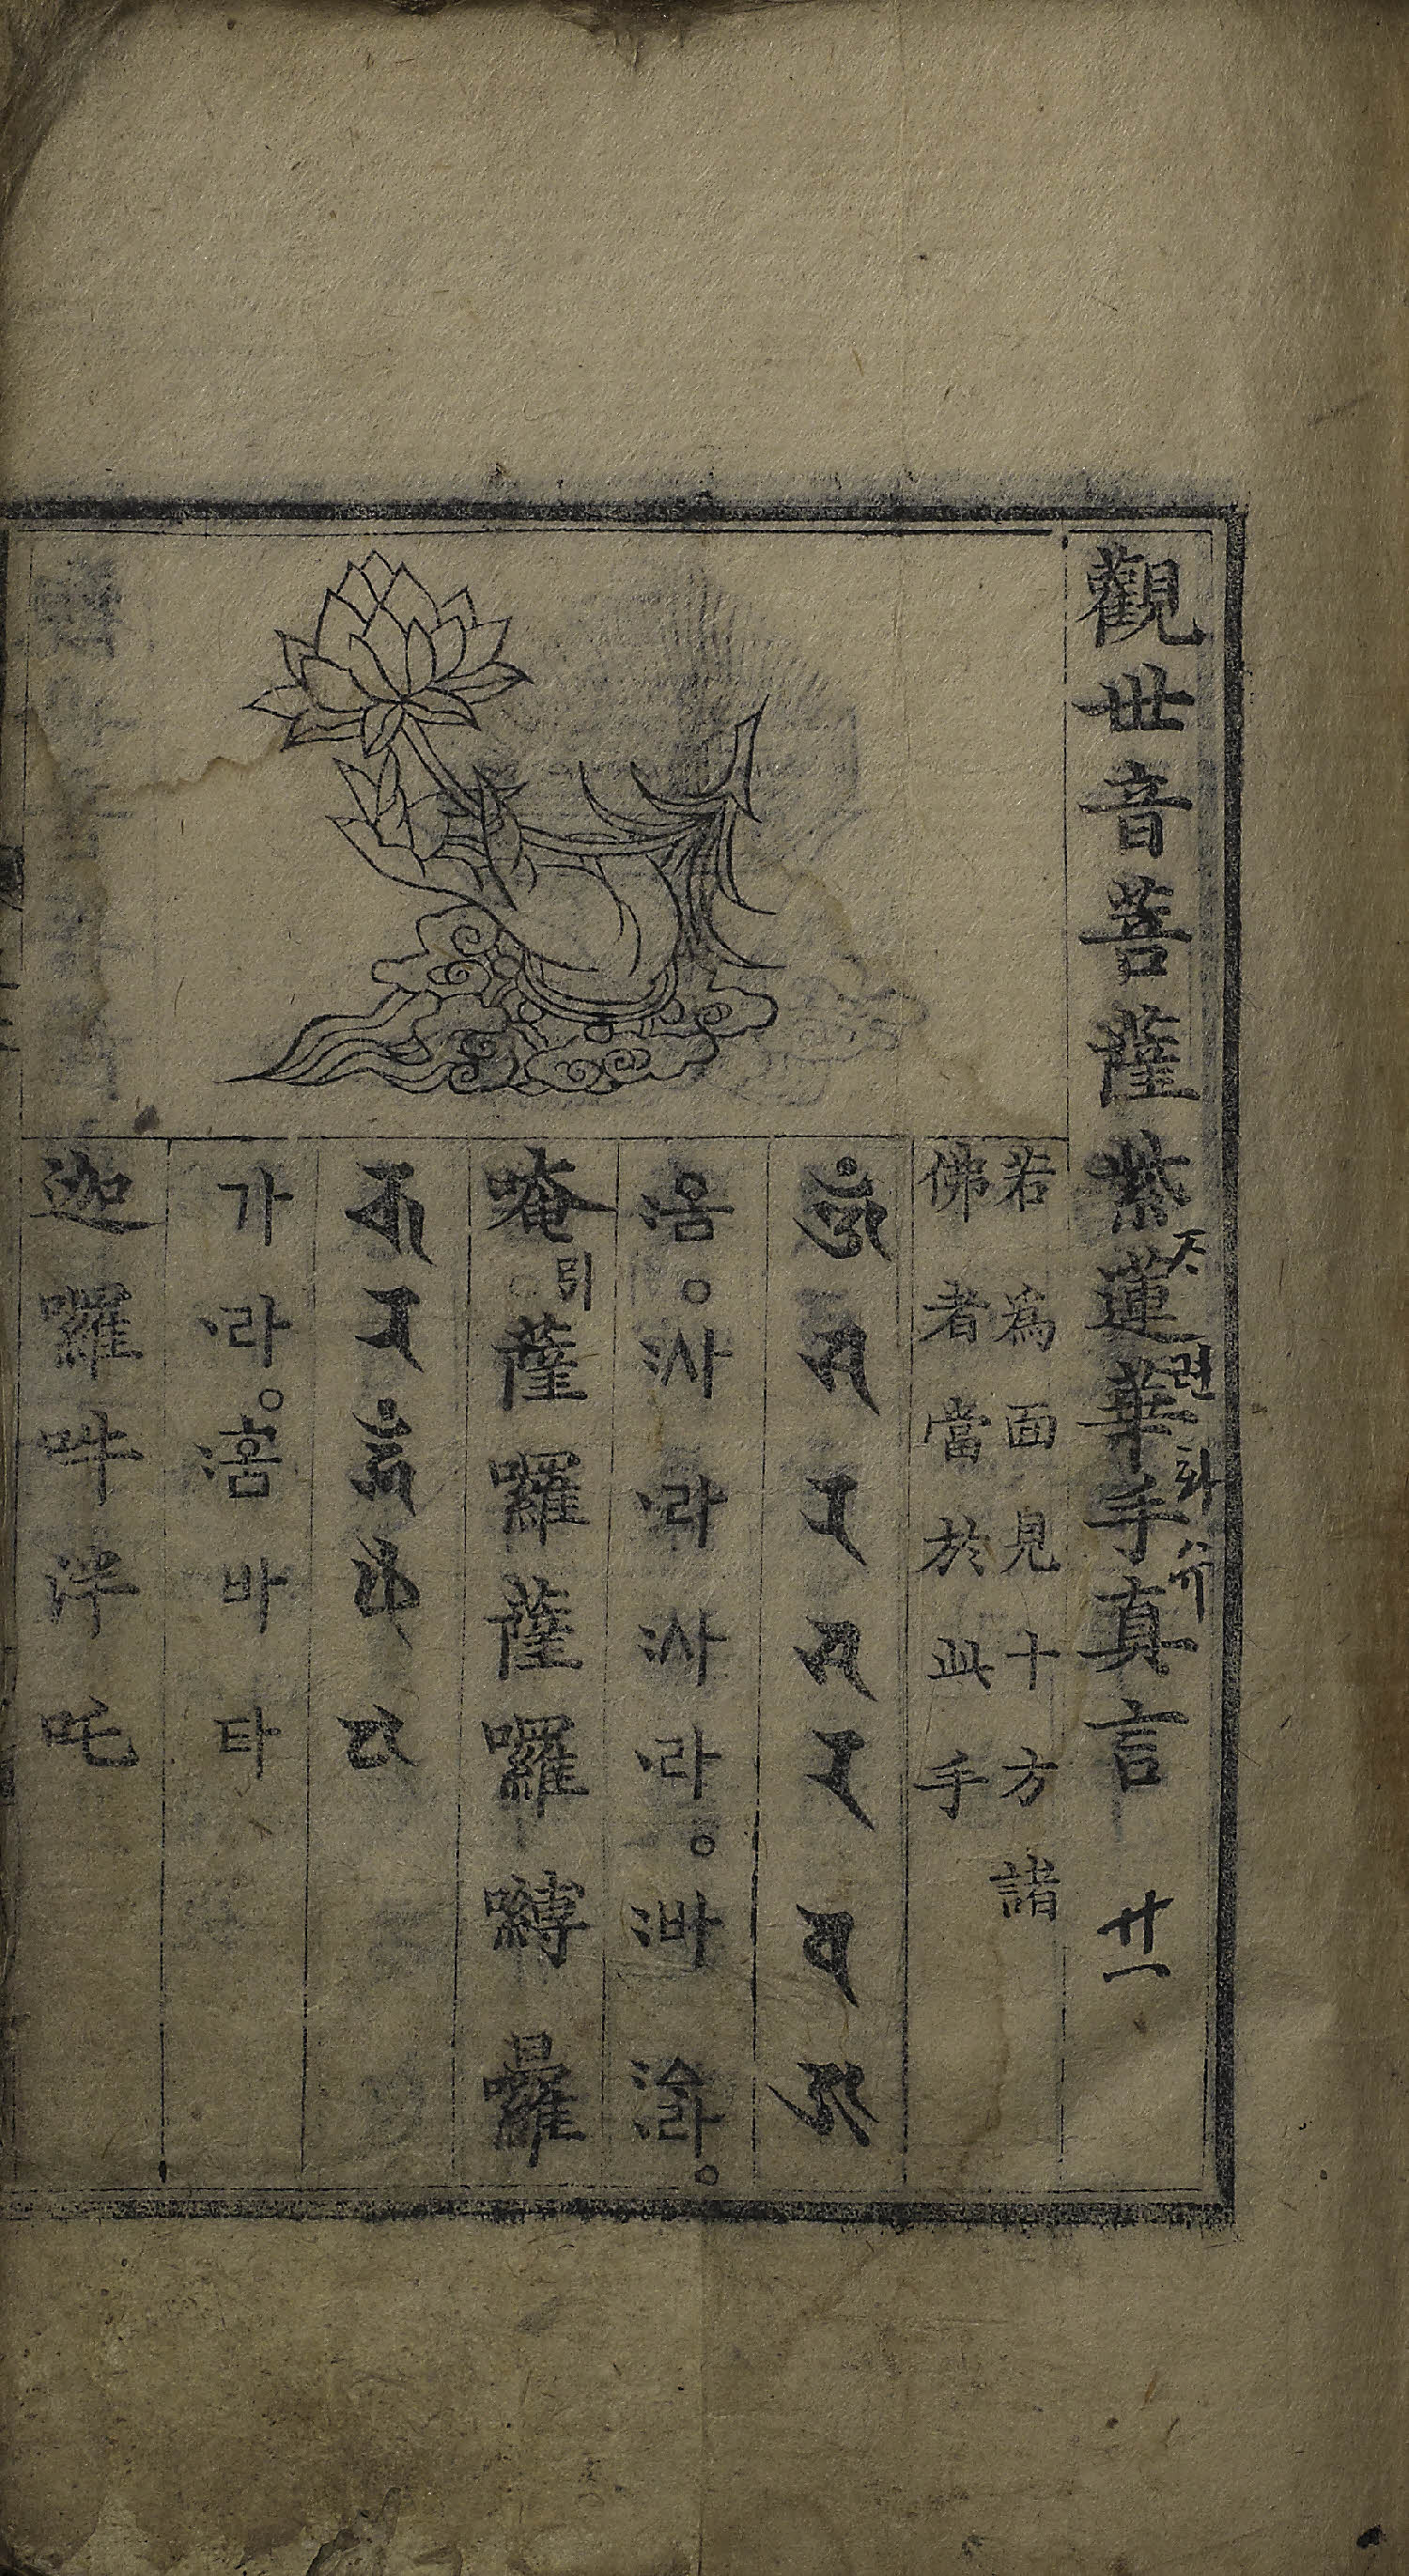 觀世音菩薩紫蓮華手真言 廿一
련
화
若為面見十方諸
佛者當於此手
𑖌𑖼𑖭𑖨𑖭𑖨𑖪𑖕𑖿𑖨
옴〯。사〯라〮사〯라〮。바〯
唵引。薩囉薩囉嚩
𑖎𑖨𑖮𑖳𑖽𑖣𑖘
가라〮。훔〯바타
迦囉吽泮吒